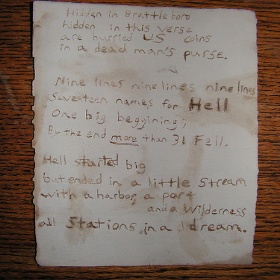 Hidden in Brattleboro
hidden in this verse
are burried US coins
in a dead man's purse.
Nine lines nine lines nine lines
Seventeen names for Hell
One big beggining;
By the end more than 31 Fell.
Hell started big
but ended in a little stream
with a harbor, a port
and a Wilderness
all Stations, in a dream.